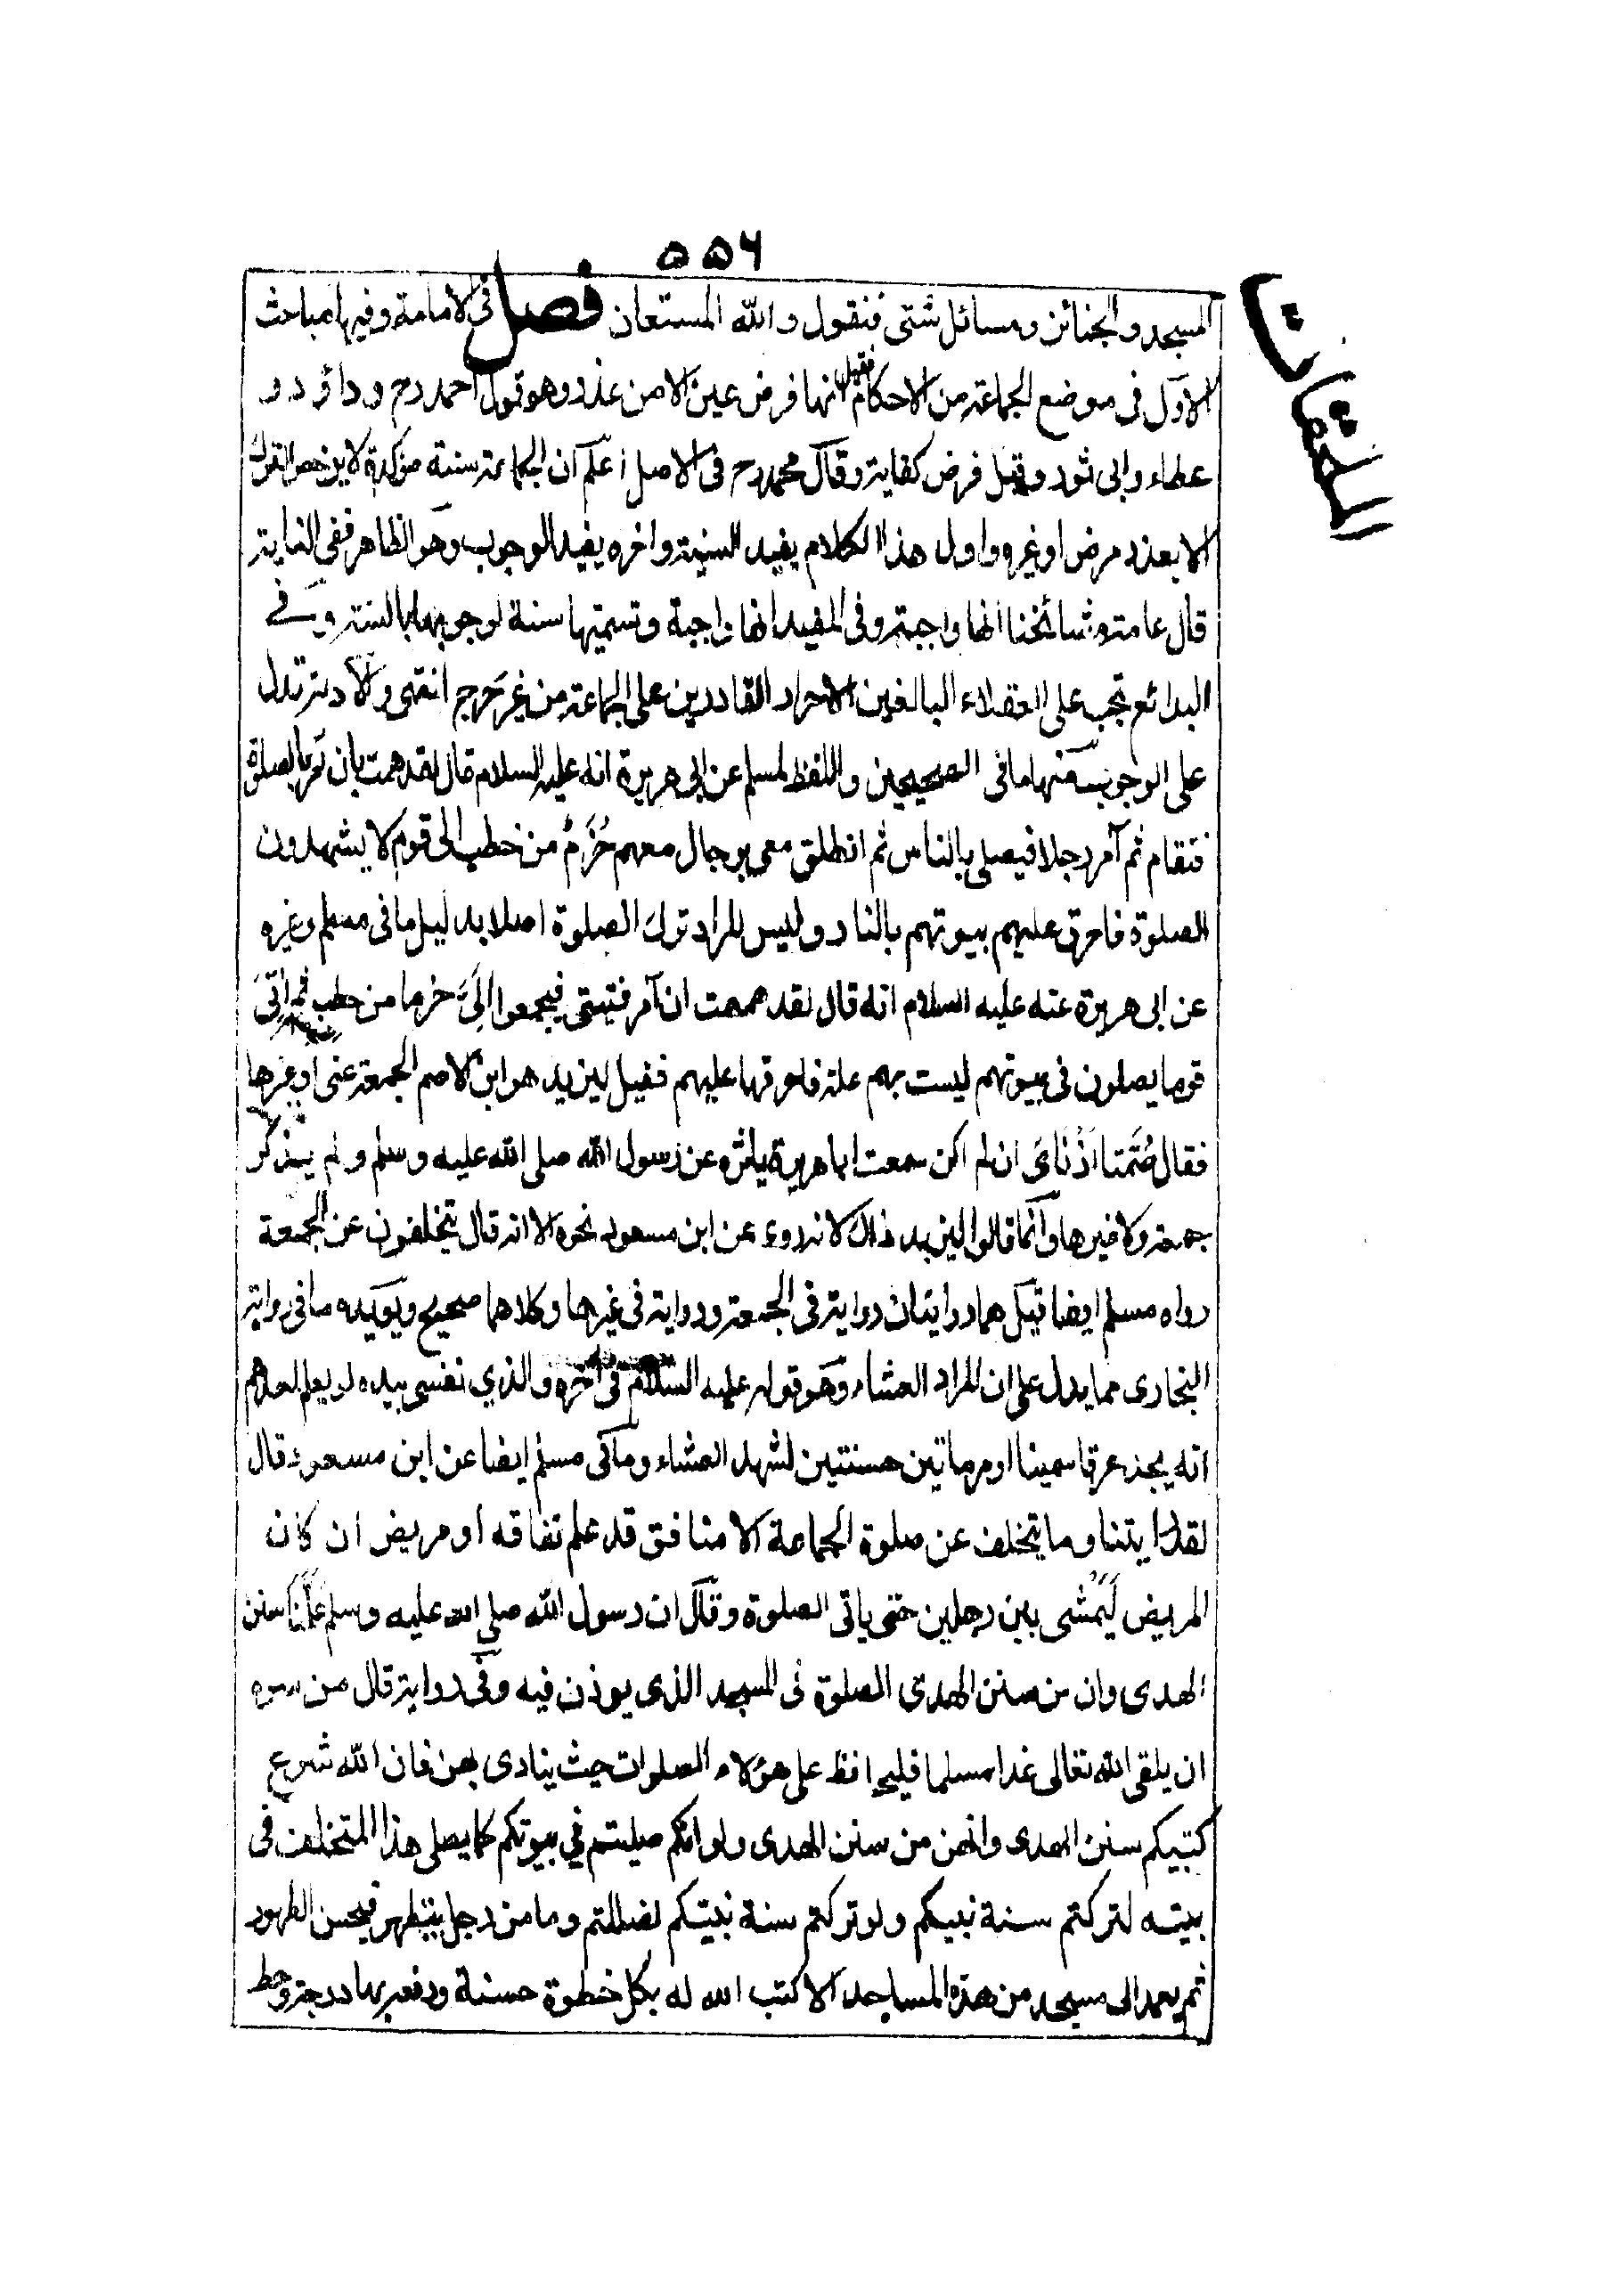 ۵۵۶
الملحقات
المسجد والجنائز ومسائل شتى فنقول والله المستعان فصل فى الامامة وفيها مباحث
الاول فى موضع الجماعة من الاحكام فقيل انها فرض عين الا من عذر وهو قول احمد رح وداؤد و
عطاء وابى ثور وقيل فرض كفاية وقال محمد رح فى الاصل اعلم ان الجماعة سنة مؤكدة لا يرخص الترك
الا بعذر مرض او غيره واول هذا الكلام يفيد السنية واخره يفيد الوجوب وهو الظاهر ففى الغاية
قال عامة مشائخنا انها واجبة وفى المفيد انها واجبة وتسميتها سنة لوجوبها بالسنة وفى
البدائع تجب على العقلاء البالغين الاحرار القادرين على الجماعة من غير حرج انتهى والادلة تدل
على الوجوب منها ما فى الصحيحين واللفظ لمسلم عن ابى هريرة انه عليه السلام قال لقد هممت بان آمر بالصلوة
فتقام ثم آمر رجلا فيصلى بالناس ثم انطلق معى برجال معهم حُزَمٌ من حطب الى قوم لا يشهدون
الصلوة فاحرق عليهم بيوتهم بالنار وليس المراد ترك الصلوة اصلا بدليل ما فى مسلم وغيره
عن ابى هريرة عنه عليه السلام انه قال لقد هممت ان آمر فتيتى فيجمعوا الىَّ حزما من حطب ثم اتى
قوما يصلون فى بيوتهم ليست بهم علة فاحرقها عليهم فقيل ليزيد هو ابن الاصم الجمعة عنى او غيرها
فقال صُمَّتا اُذُناىَ ان لم اكن سمعت ابا هريرة ياثره عن رسول الله صلى الله عليه وسلم ولم يذكر
جمعة ولا غيرها وانما قالوا ليزيد ذلك لانه روى عن ابن مسعود نحوه الا انه قال يتخلفون عن الجمعة
رواه مسلم ايضا قيل هما روايتان رواية فى الجمعة ورواية فى غيرها وكلاهما صحيح ويويده ما فى رواية
البخارى مما يدل على ان المراد العشاء وهو قوله عليه السلام فى اخره والذي نفسى بيده لو يعلم احدهم
انه يجد عرقا سمينا او مرماتين حسنتين لشهد العشاء وما فى مسلم ايضا عن ابن مسعود قال
لقد رايتنا وما يتخلف عن صلوة الجماعة الا منافق قد علم نفاقه او مريض ان كان
المريض لَيَمشى بين رجلين حتى ياتى الصلوة وقال ان رسول الله صلى الله عليه وسلم علمنا سنن
الهدى وان من سنن الهدى الصلوة فى المسجد الذى يوذن فيه وفى رواية قال من سره
ان يلقى الله تعالى غدا مسلما فليحافظ على هؤلاء الصلوات حيث ينادى بهن فان الله شرع
لنبيكم سنن الهدى وانهن من سنن الهدى ولو انكم صليتم في بيوتكم كما يصلى هذا المتخلف فى
بيته لتركتم سنة نبيكم ولو تركتم سنة نبيكم لضللتم وما من رجل يتطهر فيحسن الطهور
ثم يعمد الى مسجد من هذه المساجد الا كتب الله له بكل خطوة حسنة ورفعه بها درجة وحط